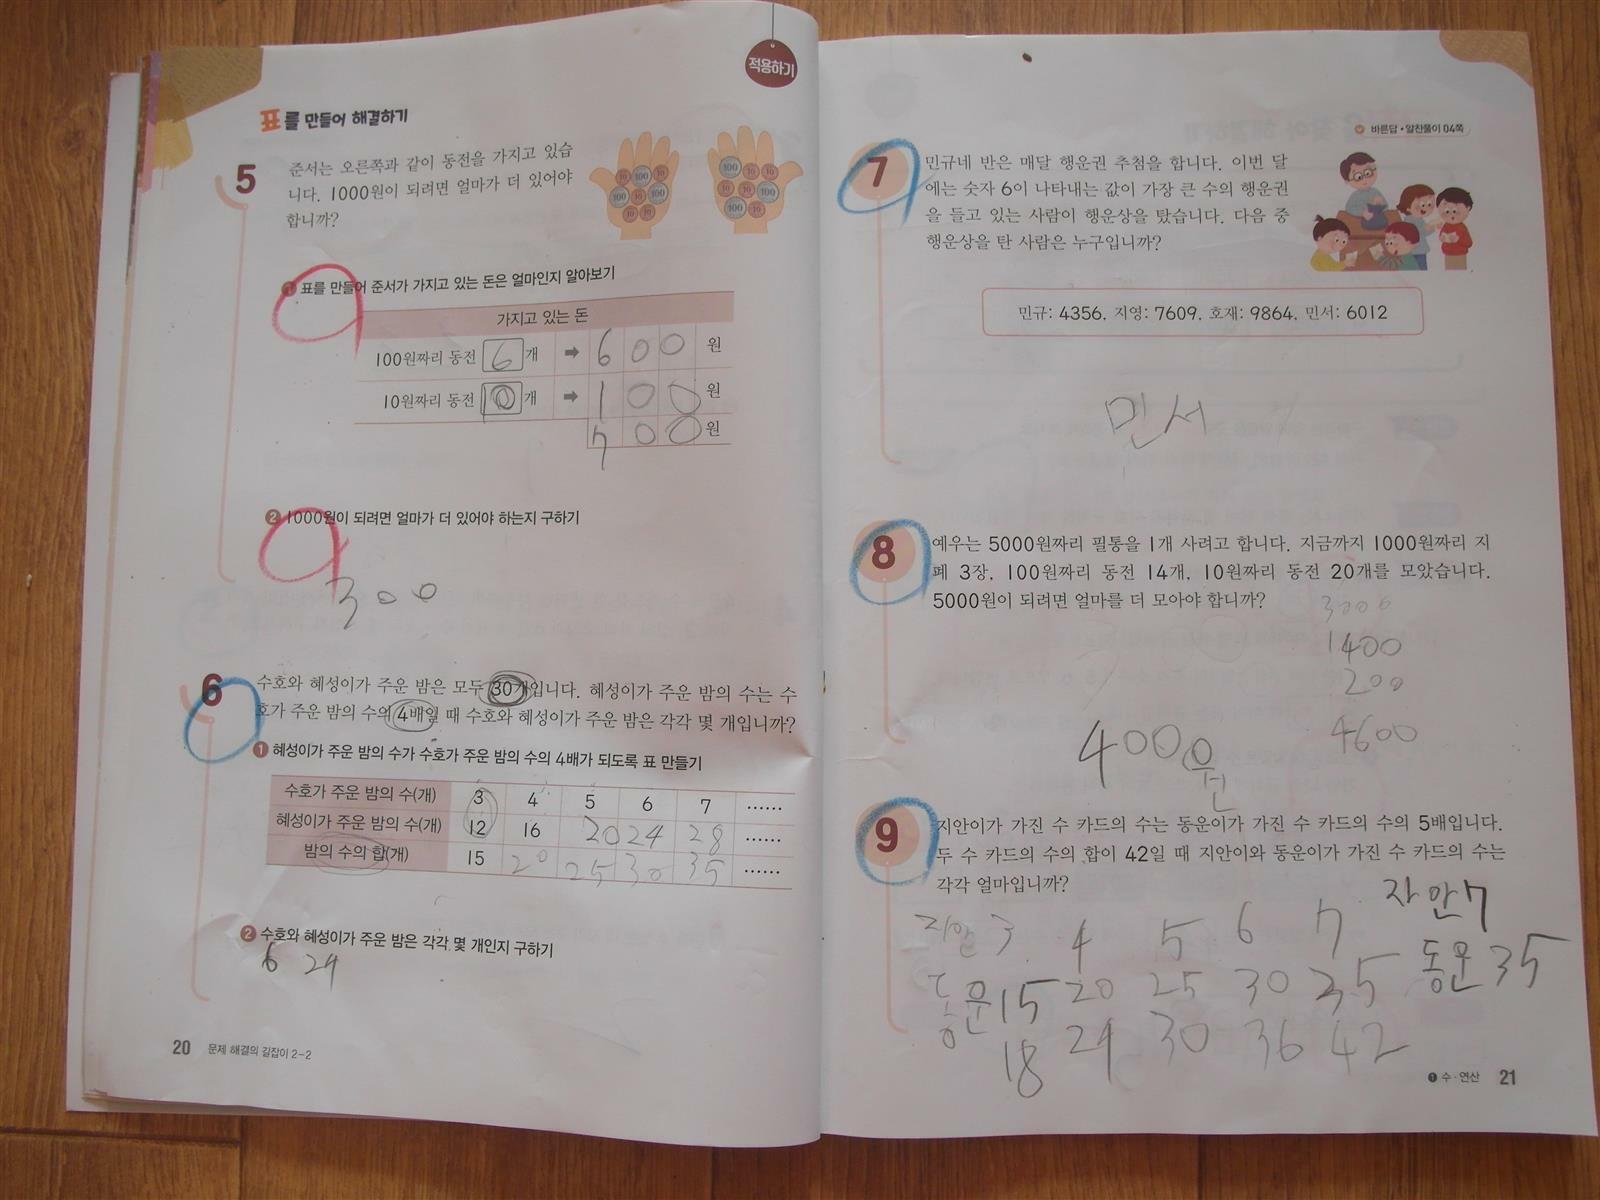 적용하기
표를 만들어 해결하기
5
준서는 오른쪽과 같이 동전을 가지고 있습
니다. 1000원이 되려면 얼마가 더 있어야
합니까?
1 표를 만들어 준서가 가지고 있는 돈은 얼마인지 알아보기
가지고 있는 돈
100원짜리 동전 6 개 ➡ 6 0 0 원
10원짜리 동전 10 개 ➡ 1 0 0 원
7 0 0 원
2 1000원이 되려면 얼마가 더 있어야 하는지 구하기
300
6
수호와 혜성이가 주운 밤은 모두 30개입니다. 혜성이가 주운 밤의 수는 수
호가 주운 밤의 수의 4배일 때 수호와 혜성이가 주운 밤은 각각 몇 개입니까?
1 혜성이가 주운 밤의 수가 수호가 주운 밤의 수의 4배가 되도록 표 만들기
수호가 주운 밤의 수(개) 3 4 5 6 7 ……
혜성이가 주운 밤의 수(개) 12 16 20 24 28 ……
밤의 수의 합(개) 15 20 25 30 35 ……
2 수호와 혜성이가 주운 밤은 각각 몇 개인지 구하기
6 24
20 문제 해결의 길잡이 2-2
바른답 • 알찬풀이 04쪽
7
민규네 반은 매달 행운권 추첨을 합니다. 이번 달
에는 숫자 6이 나타내는 값이 가장 큰 수의 행운권
을 들고 있는 사람이 행운상을 탔습니다. 다음 중
행운상을 탄 사람은 누구입니까?
민규: 4356, 지영: 7609, 호재: 9864, 민서: 6012
민서
8
예우는 5000원짜리 필통을 1개 사려고 합니다. 지금까지 1000원짜리 지
폐 3장, 100원짜리 동전 14개, 10원짜리 동전 20개를 모았습니다.
5000원이 되려면 얼마를 더 모아야 합니까?
3000
1400
200
4600
400원
9
지안이가 가진 수 카드의 수는 동운이가 가진 수 카드의 수의 5배입니다.
두 수 카드의 수의 합이 42일 때 지안이와 동운이가 가진 수 카드의 수는
각각 얼마입니까?
지안 3 4 5 6 7
동운 15 20 25 30 35
18 24 30 36 42
자안 7
동운 35
1 수·연산 21